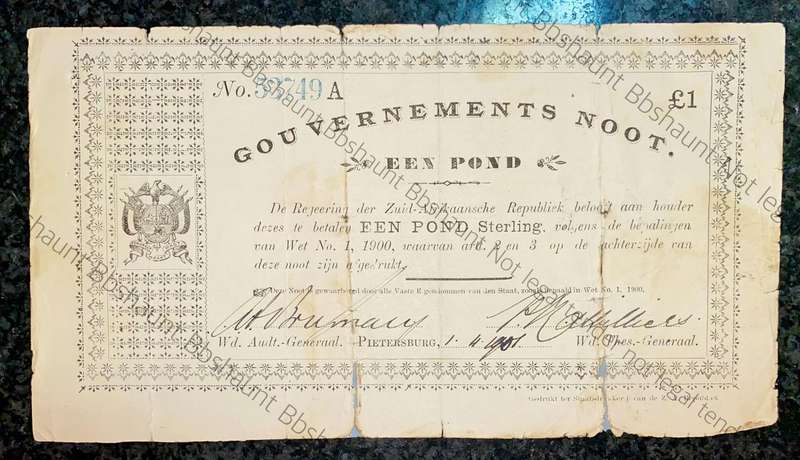 No. 33749 A £1
GOUVERNEMENTS NOOT.
EEN POND
De Regeering der Zuid-Afrikaansche Republiek belooft aan houder
dezes te betalen EEN POND Sterling, volgens de bepalingen
van Wet No. 1, 1900, waarvan art. 2 en 3 op de achterzijde van
deze noot zijn afgedrukt
Deze Noot is gewaarborgd door alle Vaste Eigendommen van den Staat, zooals bepaald in Wet No. 1, 1900.
Wd. Audt.-Generaal. PIETERSBURG, 1. 4 1901. Wd. Thes.-Generaal.
Gedrukt ter Staatsdrukkerij van de Z. A. Republiek
Bbshaunt Bbshaunt Bbshaunt Not legal tender